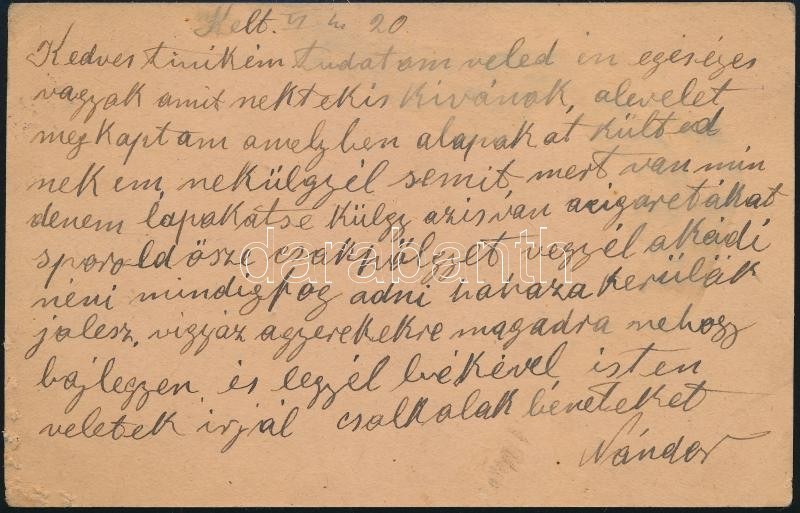 Kelt. VI 20
Kedves tinikém tudatom veled én egéséges
vagyok amit nektekis kivánok, alevelet
megkaptam amelyben alapakat külted
nekem, nekülgyél semit mert van min
denem lapakatse külgy azis van acigaretákat
sporold öszi csak hölgyet vegyél akádi
néni mindig fog adni haháza kerülök
jolesz, vigyáz agyerekekre magadra nehogy
bajlegyen és legyél békével isten
veletek irjál csalkalak béneteket
Nándor
darabanth